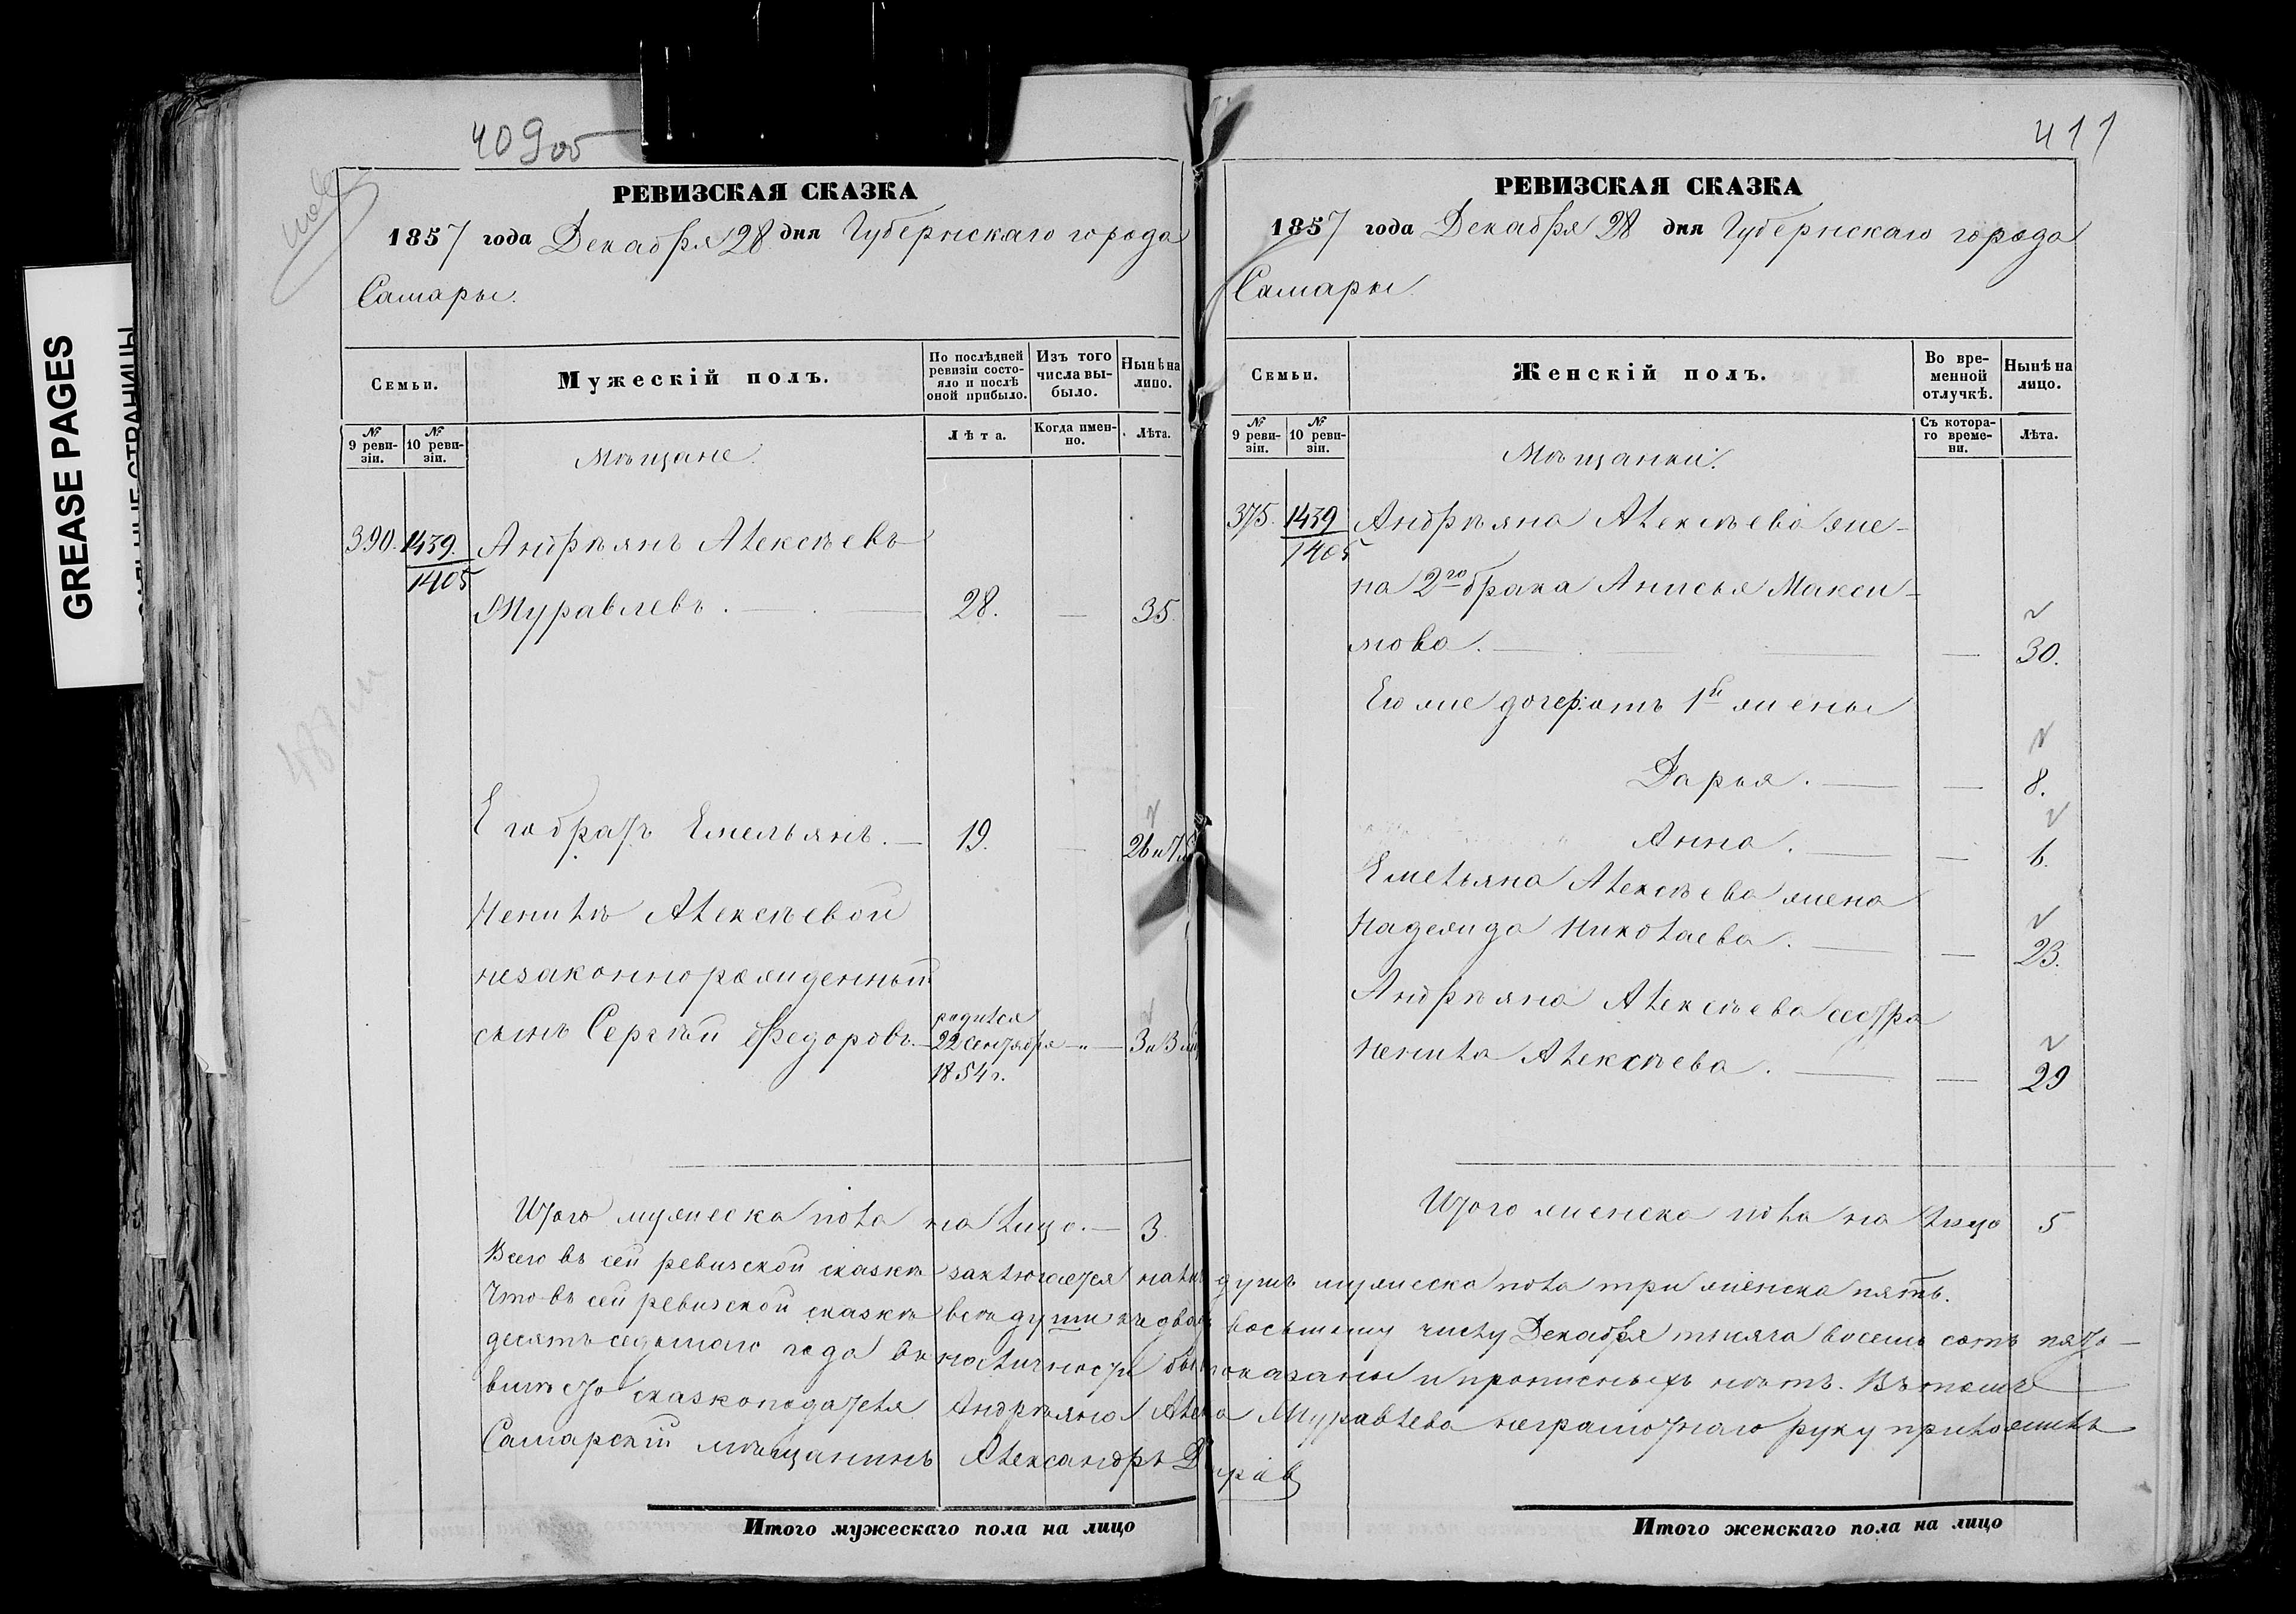 GREASE PAGES
409об
РЕВИЗСКАЯ СКАЗКА
1857 года Декабря 28 дня Губернскаго города
Самары.
Семьи.
Мужескій полъ.
По послѣдней ревизіи состояло и послѣ оной прибыло.
Изъ того числа выбыло.
Нынѣ на лицо.
№ 9 ревизіи.
№ 10 ревизіи.
Мѣщане.
Лѣта.
Когда именно.
Лѣта.
390. 1439. Андрѣянъ Алексѣевъ
1405
Муравлевъ. 28. — 35.
Его братъ Емельянъ. — 19. —
Ненилѣ Алексѣевой
незаконнорожденный
сынъ Сергѣй Федоровъ. — родился 22 Сентября 1854 г. — 3 и 3 м
Итого мужеска пола на лицо. — 3.
411
РЕВИЗСКАЯ СКАЗКА
1857 года Декабря 28 дня Губернскаго города
Самары.
Семьи.
Женскій полъ.
Во временной отлучкѣ.
Нынѣ на лицо.
№ 9 ревизіи.
№ 10 ревизіи.
Мѣщанки.
Съ котораго времени.
Лѣта.
375. 1439 Андрѣяна Алексѣева же-
1405
на 2го брака Анисья Макси-
мова. — — 30.
Его же дочер: отъ 1й жены
Дарья. — — 8.
Анна. — —
Емельяна Алексѣева жена
Надежда Николаева. — — 23.
Андрѣяна Алексѣева сестра
Ненила Алексѣева. — — 29
Итого женска пола на лицо 5
Всего въ сей ревизской сказкѣ заключается душъ мужеска пола три женска пять.
Что въ сей ревизской сказкѣ всѣ души восьмому числу Декабря тысяча восемь сотъ пять-
десятъ седьмаго года въ наличности показаны и прописныхъ нѣтъ. Въ томъ
вмѣсто сказкоподателя Андрѣяна Муравлева неграмотнаго руку приложилъ
Самарскій мѣщанинъ Александръ
Итого мужескаго пола на лицо
Итого женскаго пола на лицо